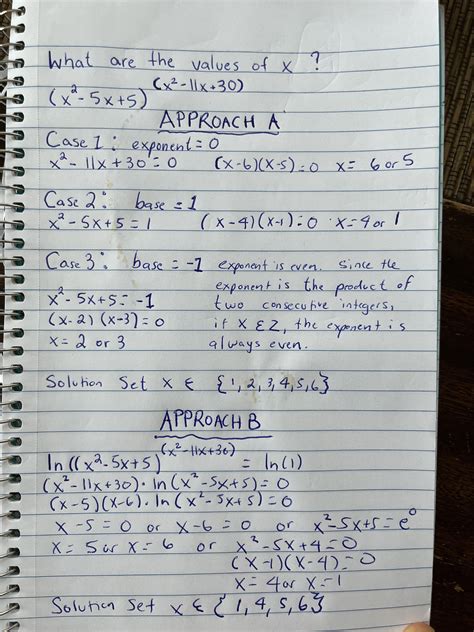 What are the values of x ?
(x²-5x+5)^(x²-11x+30)
APPROACH A
Case 1: exponent = 0
x²-11x+30=0 (x-6)(x-5)=0 x= 6 or 5
Case 2: base = 1
x²-5x+5=1 (x-4)(x-1)=0 x=4 or 1
Case 3: base = -1 exponent is even. Since the
exponent is the product of
x²-5x+5=-1 two consecutive integers,
(x-2)(x-3)=0 if x ∈ Z, the exponent is
x= 2 or 3 always even.
Solution Set x ∈ {1,2,3,4,5,6}
APPROACH B
ln((x²-5x+5)^(x²-11x+30) = ln(1)
(x²-11x+30)·ln(x²-5x+5)=0
(x-5)(x-6)·ln(x²-5x+5)=0
x-5=0 or x-6=0 or x²-5x+5=e⁰
x=5 or x=6 or x²-5x+4=0
(x-1)(x-4)=0
x=4 or x=1
Solution Set x ∈ {1,4,5,6}